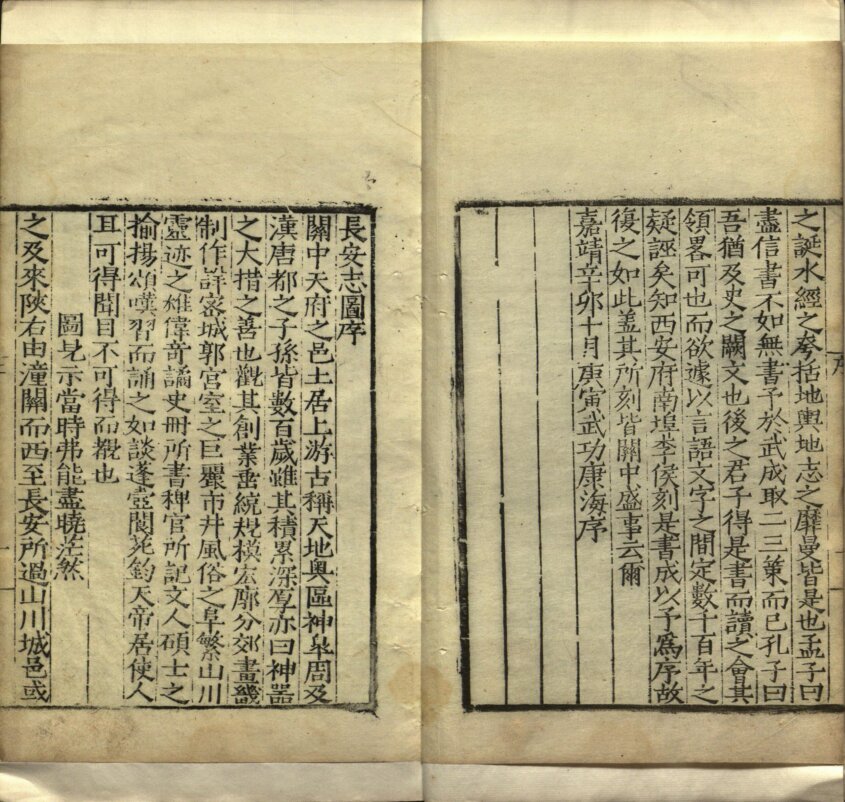 之誕水經之夸括地輿地志之靡曼皆是也孟子曰
盡信書不如無書予於武成取二三策而已孔子曰
吾猶及史之闕文也後之君子得是書而讀之會其
領畧可也而欲據以言語文字之間定數千百年之
疑誣矣知西安府南埠李侯刻是書成以予爲序故
復之如此蓋其所刻皆關中盛事云爾
嘉靖辛卯十月庚寅武功康海序
長安志圖序
關中天府之邑土居上游古稱天地奧區神臯周及
漢唐都之子孫皆數百歲雖其積累深厚亦曰神噐
之大措之善也觀其創業垂統規模宏廓分郊畫畿
制作詳密城郭宮室之巨麗市井風俗之阜繁山川
靈迹之雄偉竒譎史冊所書稗官所記文人碩士之
揄揚頌嘆習而誦之如談蓬壺閬苑鈞天帝居使人
耳可得聞目不可得而覩也
圖見示當時弗能盡曉茫然
之及來陜右由潼關而西至長安所過山川城邑或